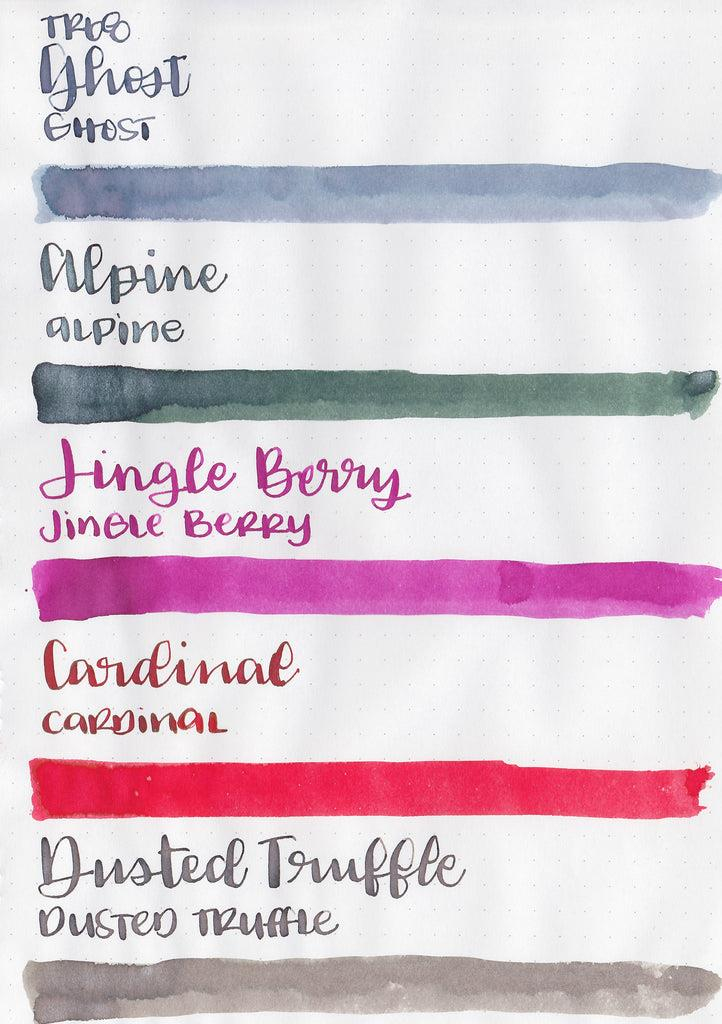 TR68
Ghost
GHOST
Alpine
alpine
Jingle Berry
JinGLE BERRY
Cardinal
CARDINAL
Dusted Truffle
DUSTED TRUffLE